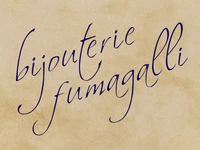 bijouterie
fumagalli